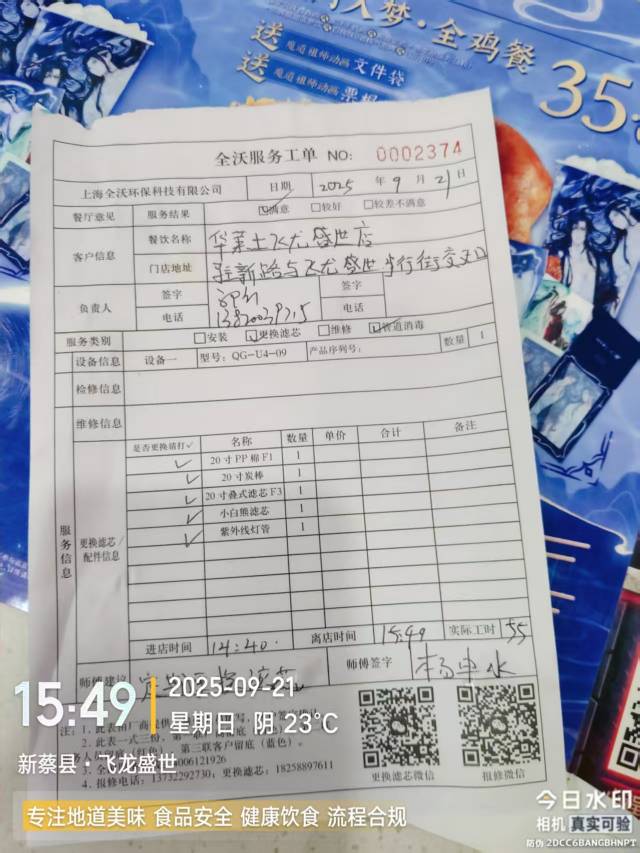 入梦·全鸡餐
送 魔道祖师动画 文件袋
送 魔道祖师动画 票根
35
全沃服务工单 NO: 0002374
上海全沃环保科技有限公司 日期 2025 年 9 月 21 日
餐厅意见 服务结果 ☑满意 □较好 □较差不满意
客户信息 餐饮名称 华莱士飞龙盛世店
门店地址 驻新路与飞龙盛世步行街交叉口
负责人 签字 签字
电话 电话
服务类别 □安装 ☑更换滤芯 □维修 ☑管道消毒
设备信息 设备一 型号: QG-U4-09 产品序列号: 数量 1
检修信息
维修信息
服务信息 更换滤芯/配件信息
是否更换请打✓ 名称 数量 单价 合计 备注
✓ 20寸PP棉F1 1
✓ 20寸炭棒 1
✓ 20寸叠式滤芯F3 1
✓ 小白熊滤芯 1
✓ 紫外线灯管 1
进店时间 14:40 离店时间 15:49 实际工时 55
师傅建议 师傅签字 杨申水
注: 1. 此表由厂商提供
2. 此表一式三份,
(红色) 第三联客户留底(蓝色)。
006121926
4. 报修电话: 13732292730; 更换滤芯: 18258897611
更换滤芯微信 报修微信
15:49 2025-09-21
星期日 阴 23°C
新蔡县·飞龙盛世
专注地道美味 食品安全 健康饮食 流程合规
今日水印
相机 真实可验
防伪 2DCC6BANGBHNPT